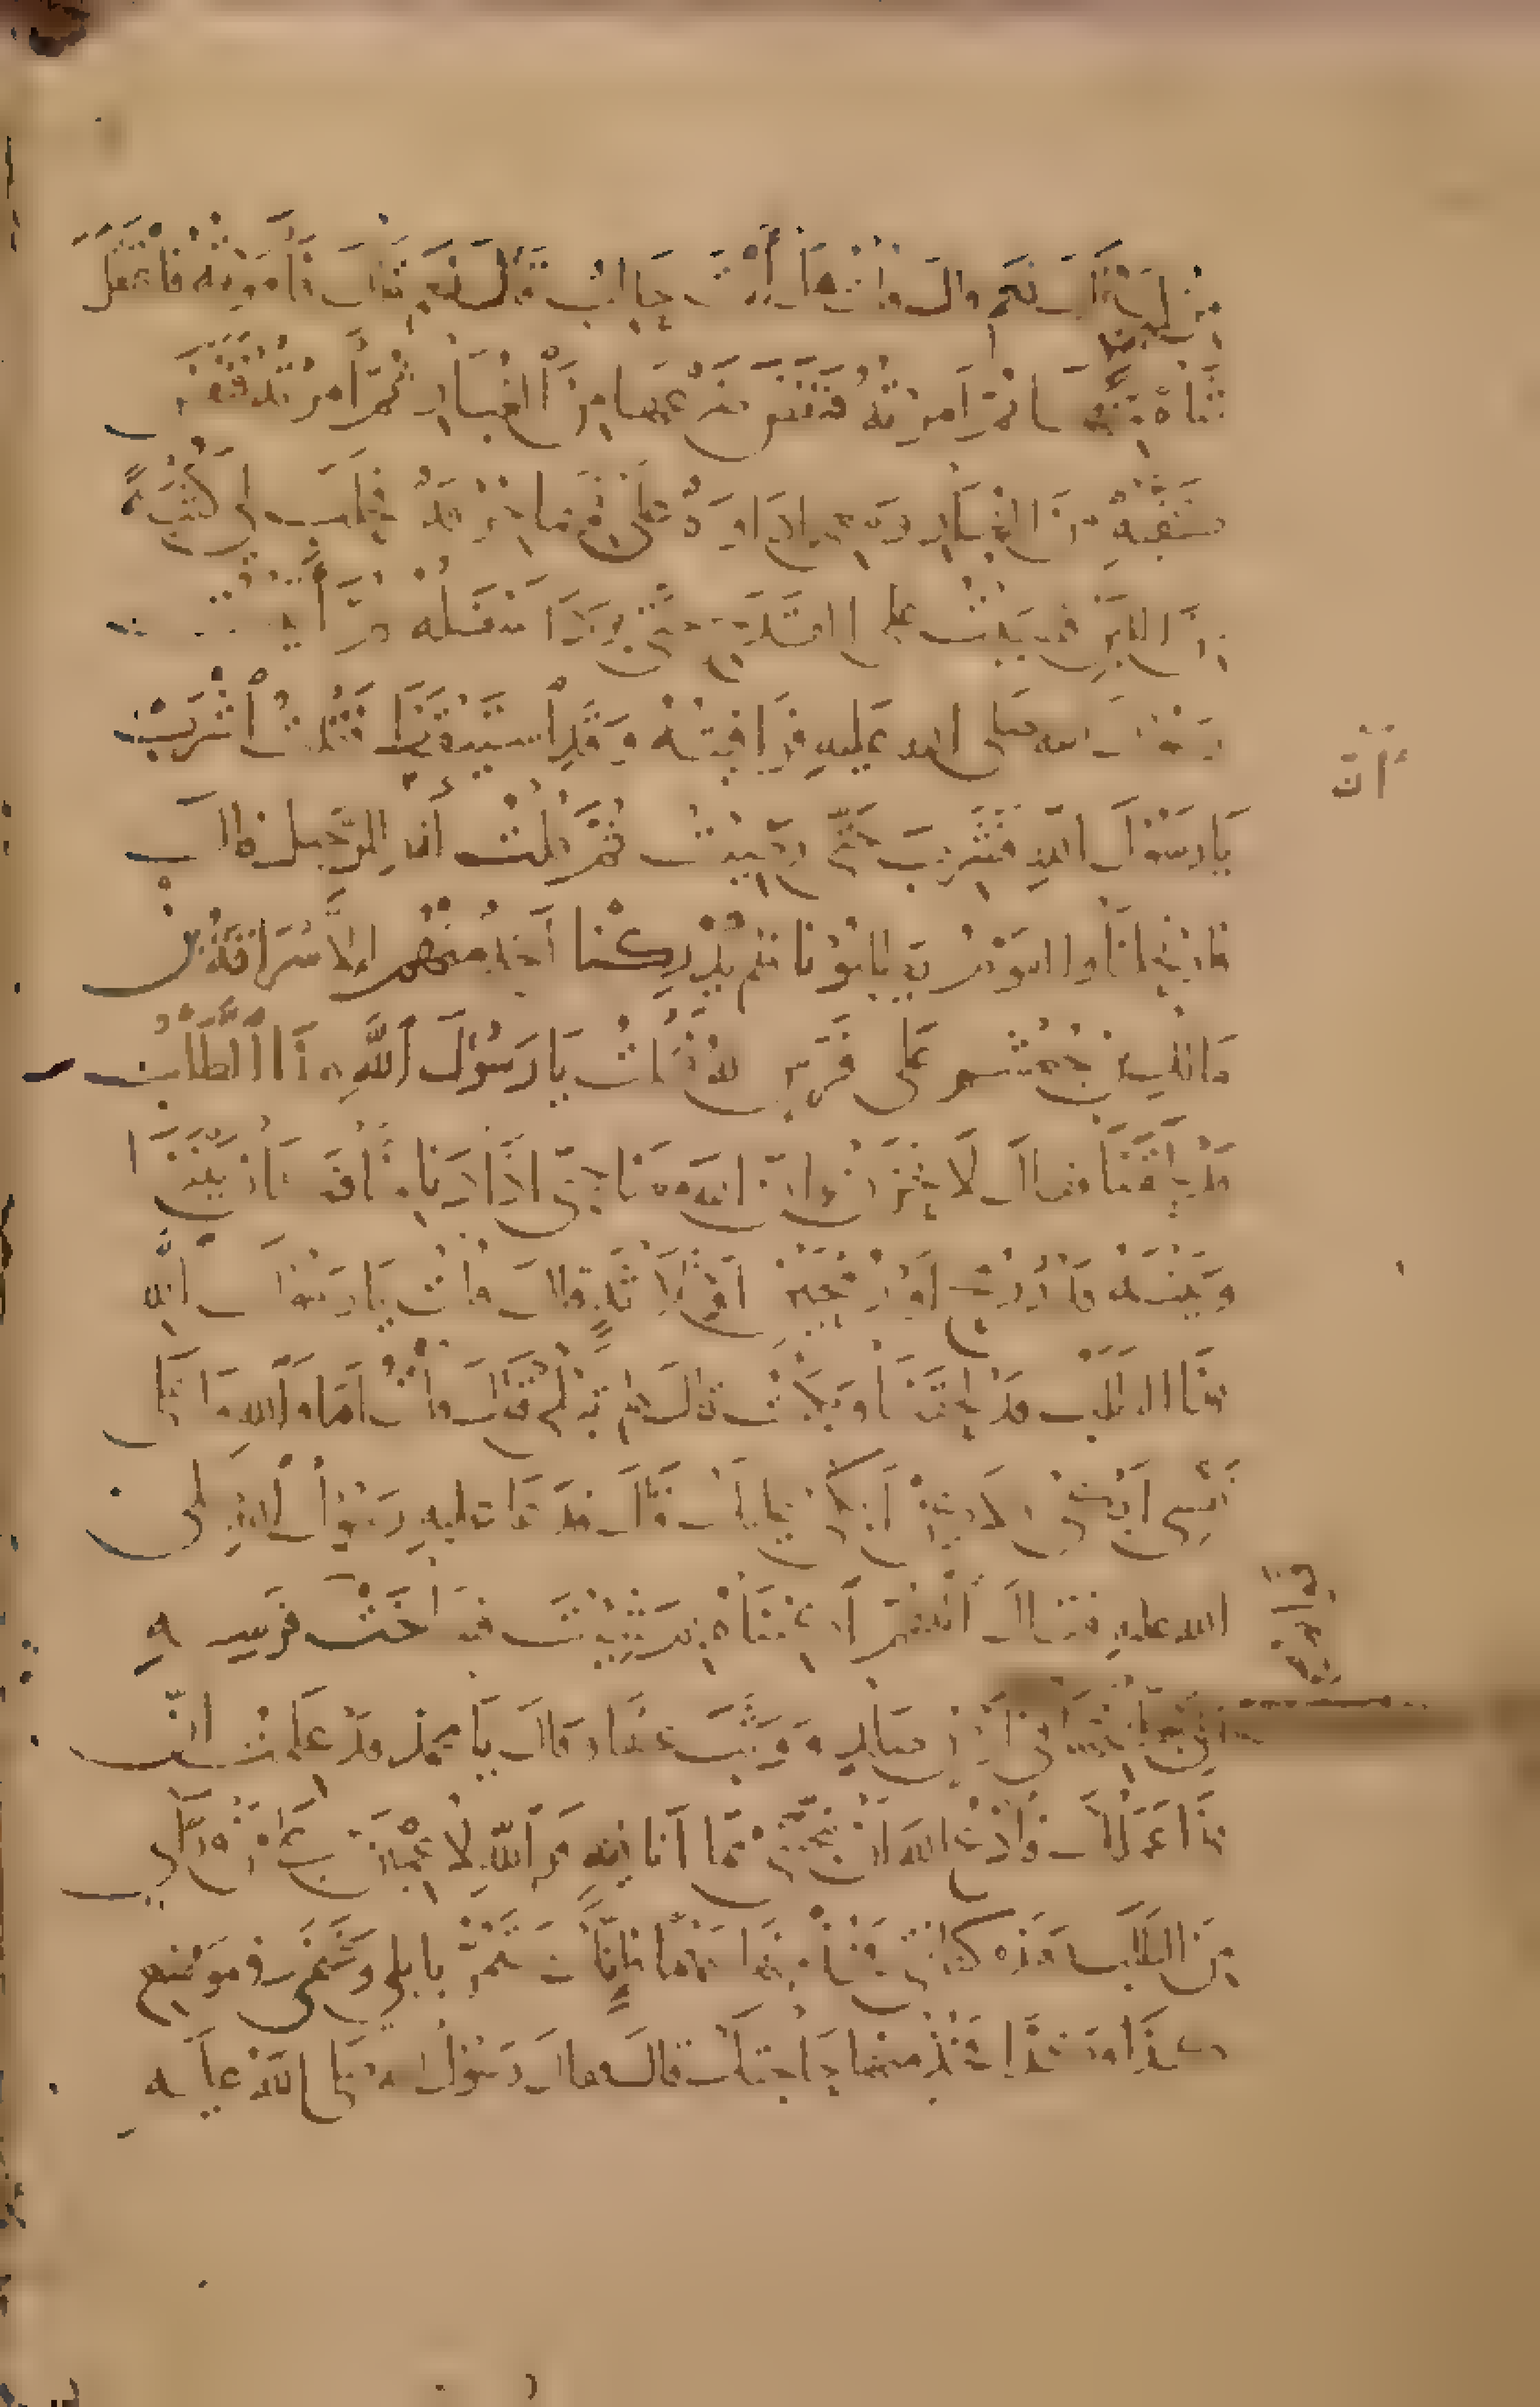 من لبن قال نعم قال قلت هل أنت حالب قال نعم قال فأمرته فاعتقل
شاة منها ثم أمرته فنفض ضرعها من الغبار ثم أمرته فنفض
كفيه من الغبار ومعي إداوة على فمها خرقة فحلب لي كثبة
من اللبن فصببت على القدح حتى برد أسفله فأتيت
رسول الله صلى الله عليه فوافيته وقد استيقظ فقلت اشرب
يا رسول الله فشرب حتى رضيت ثم قلت أنى الرحيل قال
فارتحلنا والقوم يطلبونا فلم يدركنا أحد منهم إلا سراقة بن
مالك بن جعشم على فرس له فقلت يا رسول الله هذا الطلب
قد لحقنا فقال لا تحزن إن الله معنا حتى إذا دنا منا فكان بيننا
وبينه قدر رمح أو رمحين أو ثلاثة قال قلت يا رسول الله
هذا الطلب قد لحقنا وبكيت قال لم تبكي قال قلت أما والله ما على
نفسي أبكي ولكني أبكي عليك قال فدعا عليه رسول الله صلى
الله عليه فقال اللهم اكفناه بما شئت فساخت فرسه
إلى بطنها في أرض صلد ووثب عنها وقال يا محمد قد علمت أن
هذا عملك فادع الله أن ينجيني مما أنا فيه فوالله لأعمين على من ورائي
من الطلب وهذه كنانتي فخذ منها سهما فإنك ستمر بابلي وغنمي في موضع
كذا وكذا فخذ منها حاجتك قال فقال رسول الله صلى الله عليه